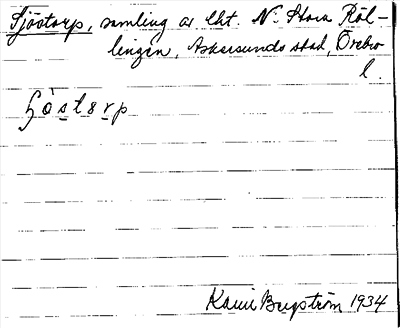 Sjöstorp, samling av lht. N. Stora Röl-
lingen, Askersunds stad, Örebro
l.
Karin Bergström 1934